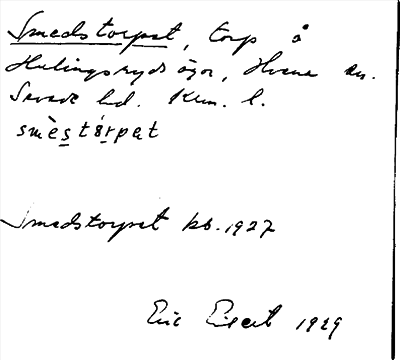 Smedstorpet, torp å
Hulingsryds ägor, Hvena sn.
Sevede hd. Km. l.
smèstórpet
Smedstorpet kb. 1927
Eric Elgert 1929